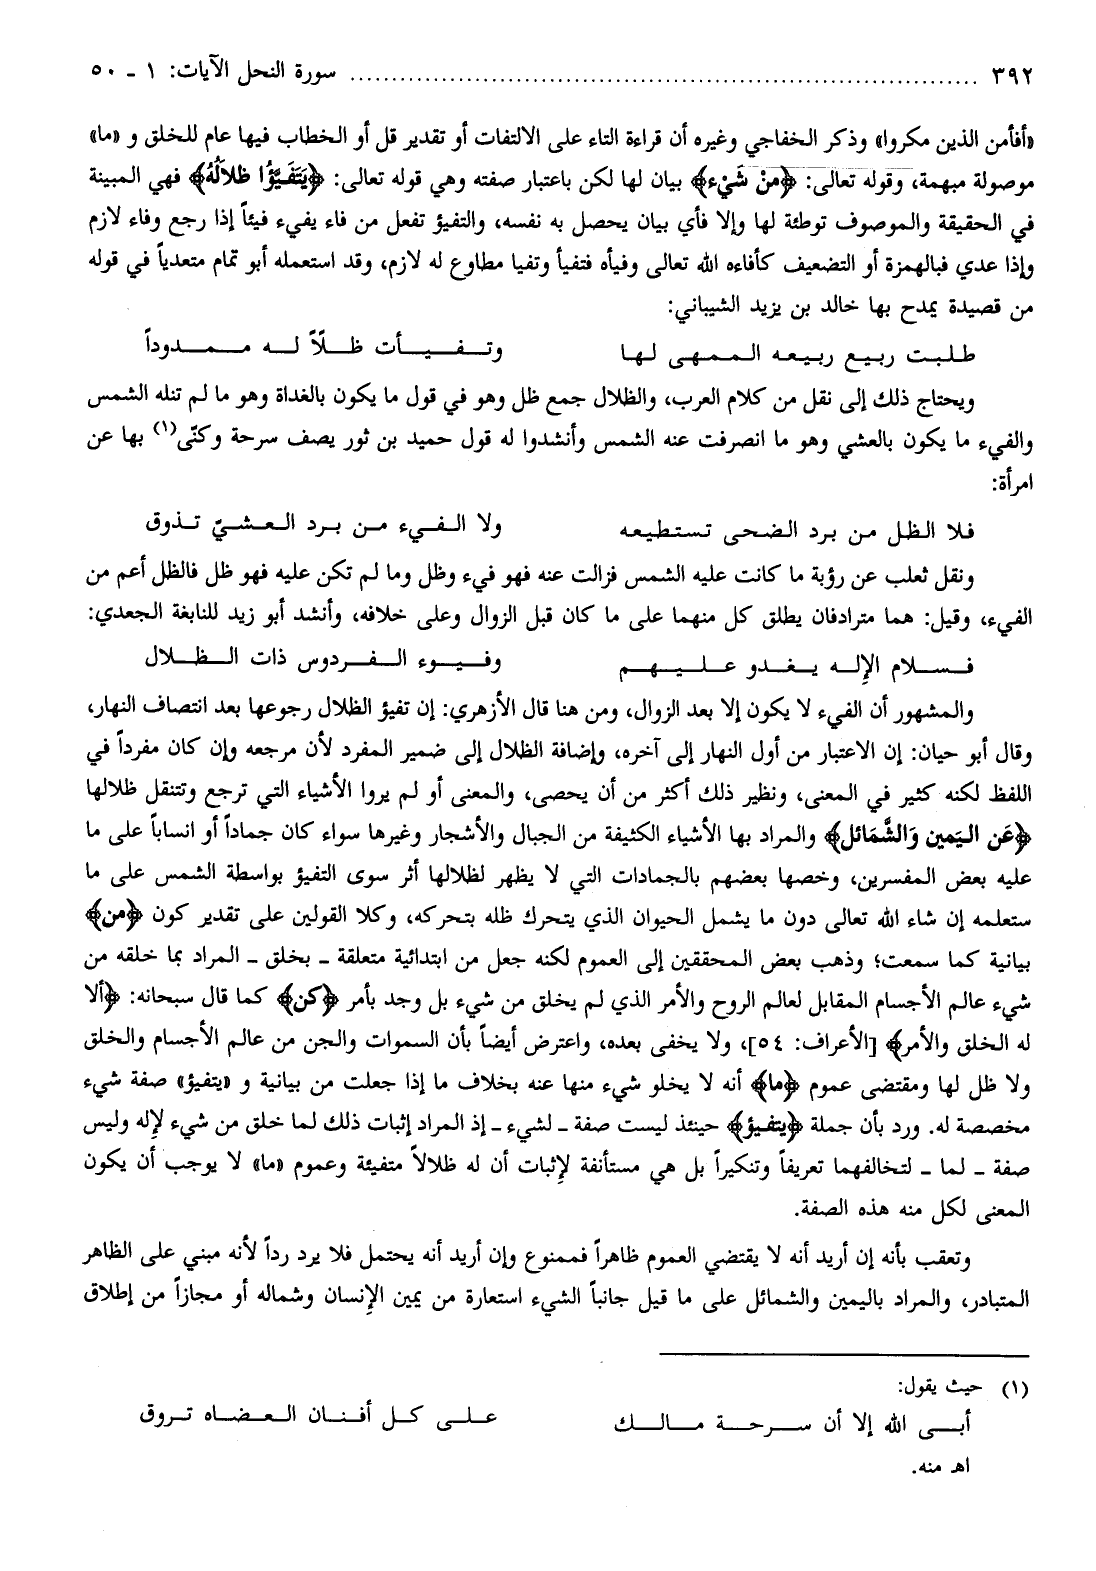 ٣٩٢ ........................................................................ سورة النحل الآيات: ١ ـ ٥٠
«أفأمن الذين مكروا» وذكر الخفاجي وغيره أن قراءة التاء على الالتفات أو تقدير قل أو الخطاب فيها عام للخلق و «ما»
موصولة مبهمة، وقوله تعالى: ﴿مِنْ شَيْء﴾ بيان لها لكن باعتبار صفته وهي قوله تعالى: ﴿يَتَفَيَّؤُا ظلالُهُ﴾ فهي المبينة
في الحقيقة والموصوف توطئة لها وإلا فأي بيان يحصل به نفسه، والتفيؤ تفعل من فاء يفيء فيئاً إذا رجع وفاء لازم
وإذا عدي فبالهمزة أو التضعيف كأفاءه الله تعالى وفيأه فتفيأ وتفيا مطاوع له لازم، وقد استعمله أبو تمام متعدياً في قوله
من قصيدة يمدح بها خالد بن يزيد الشيباني:
طلبت ربيع ربيعه الممهى لها وتفيأت ظلاً له ممدوداً
ويحتاج ذلك إلى نقل من كلام العرب، والظلال جمع ظل وهو في قول ما يكون بالغداة وهو ما لم تنله الشمس
والفيء ما يكون بالعشي وهو ما انصرفت عنه الشمس وأنشدوا له قول حميد بن ثور يصف سرحة وكنّى(١) بها عن
امرأة:
فلا الظل من برد الضحى تستطيعه ولا الفيء من برد العشيّ تذوق
ونقل ثعلب عن رؤبة ما كانت عليه الشمس فزالت عنه فهو فيء وظل وما لم تكن عليه فهو ظل فالظل أعم من
الفيء، وقيل: هما مترادفان يطلق كل منهما على ما كان قبل الزوال وعلى خلافه، وأنشد أبو زيد للنابغة الجعدي:
فسلام الإله يغدو عليهم وفيوء الفردوس ذات الظلال
والمشهور أن الفيء لا يكون إلا بعد الزوال، ومن هنا قال الأزهري: إن تفيؤ الظلال رجوعها بعد انتصاف النهار،
وقال أبو حيان: إن الاعتبار من أول النهار إلى آخره، وإضافة الظلال إلى ضمير المفرد لأن مرجعه وإن كان مفرداً في
اللفظ لكنه كثير في المعنى، ونظير ذلك أكثر من أن يحصى، والمعنى أو لم يروا الأشياء التي ترجع وتتنقل ظلالها
﴿عَن اليَمين وَالشَّمَائل﴾ والمراد بها الأشياء الكثيفة من الجبال والأشجار وغيرها سواء كان جماداً أو انساباً على ما
عليه بعض المفسرين، وخصها بعضهم بالجمادات التي لا يظهر لظلالها أثر سوى التفيؤ بواسطة الشمس على ما
ستعلمه إن شاء الله تعالى دون ما يشمل الحيوان الذي يتحرك ظله بتحركه، وكلا القولين على تقدير كون ﴿من﴾
بيانية كما سمعت؛ وذهب بعض المحققين إلى العموم لكنه جعل من ابتدائية متعلقة ـ بخلق ـ المراد بما خلقه من
شيء عالم الأجسام المقابل لعالم الروح والأمر الذي لم يخلق من شيء بل وجد بأمر ﴿كن﴾ كما قال سبحانه: ﴿ألا
له الخلق والأمر﴾ [الأعراف: ٥٤]، ولا يخفى بعده، واعترض أيضاً بأن السموات والجن من عالم الأجسام والخلق
ولا ظل لها ومقتضى عموم ﴿ما﴾ أنه لا يخلو شيء منها عنه بخلاف ما إذا جعلت من بيانية و «يتفيؤ» صفة شيء
مخصصة له. ورد بأن جملة ﴿يتفيؤ﴾ حينئذ ليست صفة ـ لشيء ـ إذ المراد إثبات ذلك لما خلق من شيء لإله وليس
صفة ـ لما ـ لتخالفهما تعريفاً وتنكيراً بل هي مستأنفة لإثبات أن له ظلالاً متفيئة وعموم «ما» لا يوجب أن يكون
المعنى لكل منه هذه الصفة.
وتعقب بأنه إن أريد أنه لا يقتضي العموم ظاهراً فممنوع وإن أريد أنه يحتمل فلا يرد رداً لأنه مبني على الظاهر
المتبادر، والمراد باليمين والشمائل على ما قيل جانباً الشيء استعارة من يمين الإنسان وشماله أو مجازاً من إطلاق
(١) حيث يقول:
أبى الله إلا أن سرحة مالك على كل أفنان العضاه تروق
اهـ منه.